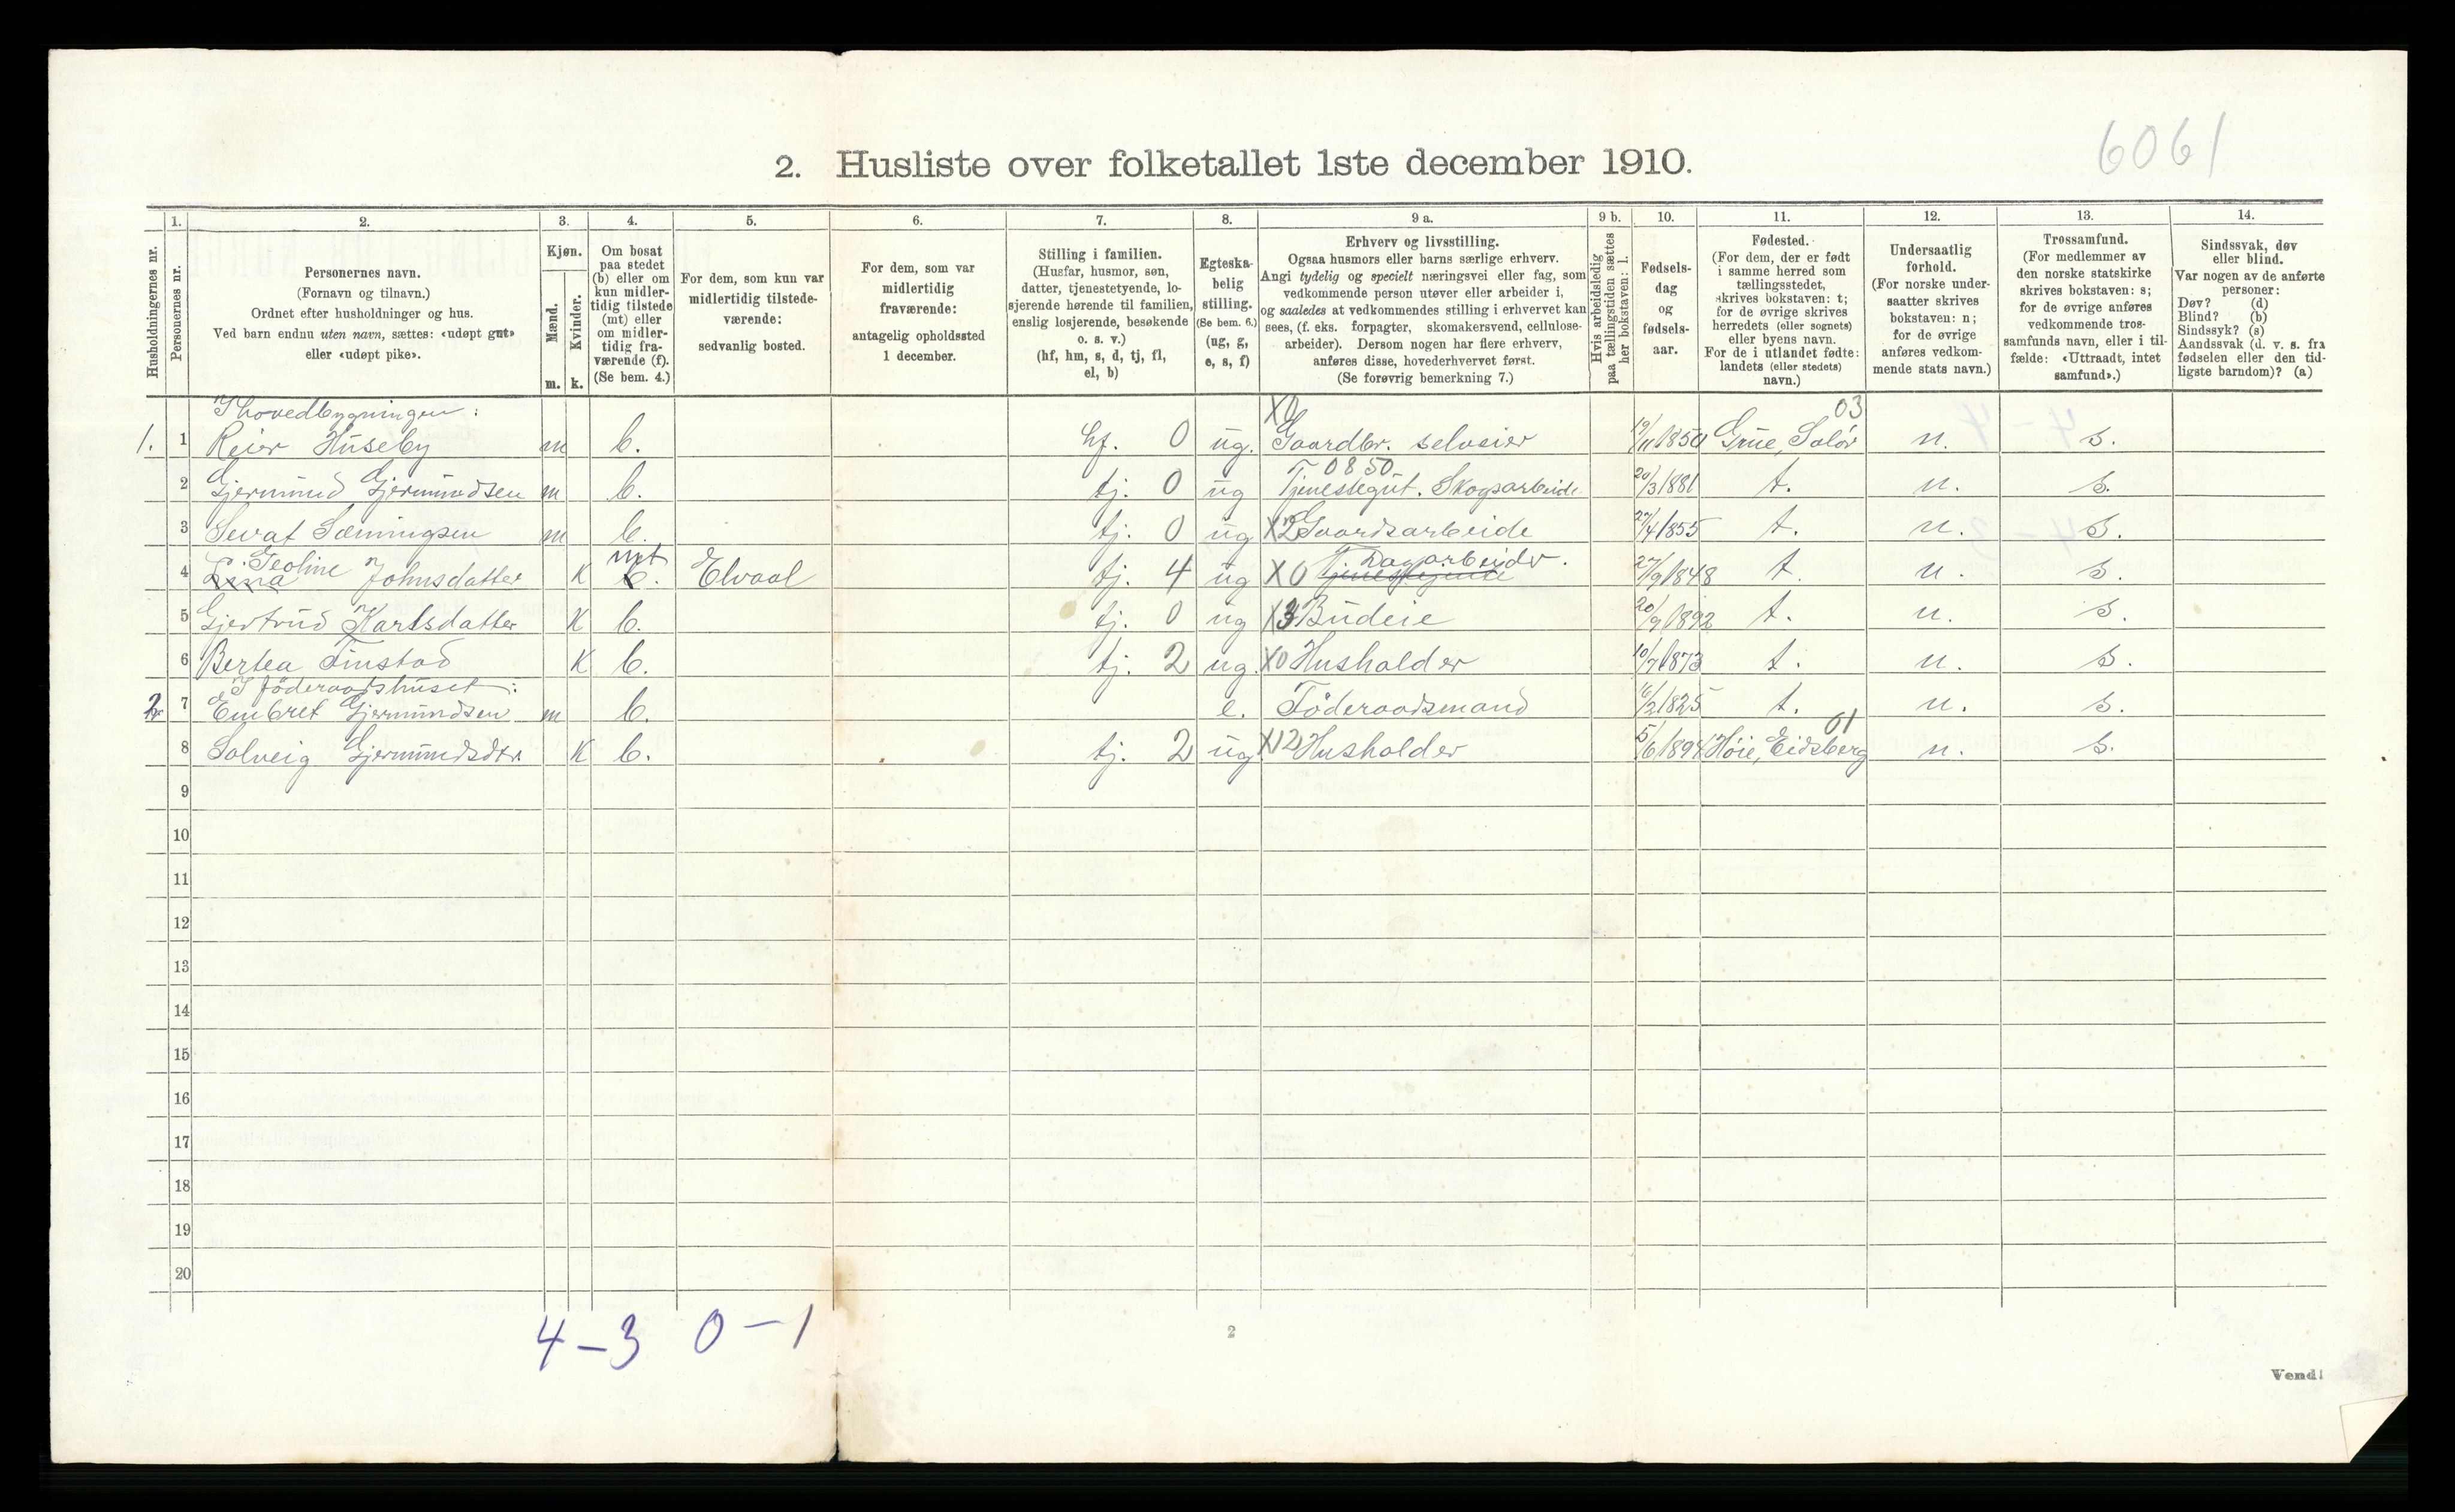 6061
2. Husliste over folketallet 1ste december 1910.
Husholdningernes nr.
1. Personernes nr.
2. Personernes navn.
(Fornavn og tilnavn.)
Ordnet efter husholdninger og hus.
Ved barn endnu uten navn, sættes: «udøpt gut»
eller «udøpt pike».
3. Kjøn.
Mænd. m.
Kvinder. k.
4. Om bosat
paa stedet
(b) eller om
kun midler-
tidig tilstede
(mt) eller
om midler-
tidig fra-
værende (f).
(Se bem. 4.)
5. For dem, som kun var
midlertidig tilstede-
værende:
sedvanlig bosted.
6. For dem, som var
midlertidig
fraværende:
antagelig opholdssted
1 december.
7. Stilling i familien.
(Husfar, husmor, søn,
datter, tjenestetyende, lo-
sjerende hørende til familien,
enslig losjerende, besøkende
o. s. v.)
(hf, hm, s, d, tj, fl,
el, b)
8. Egteska-
belig
stilling.
(Se bem. 6.)
(ug, g,
e, s, f)
9 a. Erhverv og livsstilling.
Ogsaa husmors eller barns særlige erhverv.
Angi tydelig og specielt næringsvei eller fag, som
vedkommende person utøver eller arbeider i,
og saaledes at vedkommendes stilling i erhvervet kan
sees, (f. eks. forpagter, skomakersvend, cellulose-
arbeider). Dersom nogen har flere erhverv,
anføres disse, hovederhvervet først.
(Se forøvrig bemerkning 7.)
9 b. Hvis arbeidsledig
paa tællingstiden sættes
her bokstaven: l.
10. Fødsels-
dag
og
fødsels-
aar.
11. Fødested.
(For dem, der er født
i samme herred som
tællingsstedet,
skrives bokstaven: t;
for de øvrige skrives
herredets (eller sognets)
eller byens navn.
For de i utlandet fødte:
landets (eller stedets)
navn.)
12. Undersaatlig
forhold.
(For norske under-
saatter skrives
bokstaven: n;
for de øvrige
anføres vedkom-
mende stats navn.)
13. Trossamfund.
(For medlemmer av
den norske statskirke
skrives bokstaven: s;
for de øvrige anføres
vedkommende tros-
samfunds navn, eller i til-
fælde: «Uttraadt, intet
samfund».)
14. Sindssvak, døv
eller blind.
Var nogen av de anførte
personer:
Døv? (d)
Blind? (b)
Sindssyk? (s)
Aandssvak (d. v. s. fra
fødselen eller den tid-
ligste barndom)? (a)
I hovedbygningen: X0 03
1. 1 Reier Huseby m b. hf. 0 ug. Gaardbr. selveier 19/11 1850 Grue, Solør n. s.
0850
2 Gjermund Gjermundsen m b. tj. 0 ug Tjenestegut. Skogsarbeide 20/3 1881 t. n. s.
3 Sevat Sæmingsen m b. tj. 0 ug X2 Gaardsarbeide 27/4 1855 t. n. s.
Teoline mt Dagarbeider.
4 Lina Johnsdatter K b. Elvaal tj. 4 ug X0 Tjenestejente 27/9 1848 t. n. s.
5 Gjertrud Karlsdatter K b. tj. 0 ug X3 Budeie 20/9 1892 t. n. s.
6 Bertea Finstad K b. tj. 2 ug. X0 Husholder 10/7 1873 t. n. s.
I föderaadshuset:
2 7 Embret Gjermundsen m b. e. Föderaadsmand 16/2 1825 t. n. s.
01
8 Solveig Gjermundsdtr K b. tj. 2 ug X12 Husholder 5/6 1894 Høie, Eidsberg n. s.
9
10
11
12
13
14
15
16
17
18
19
20
4-3 0-1
2
Vend!